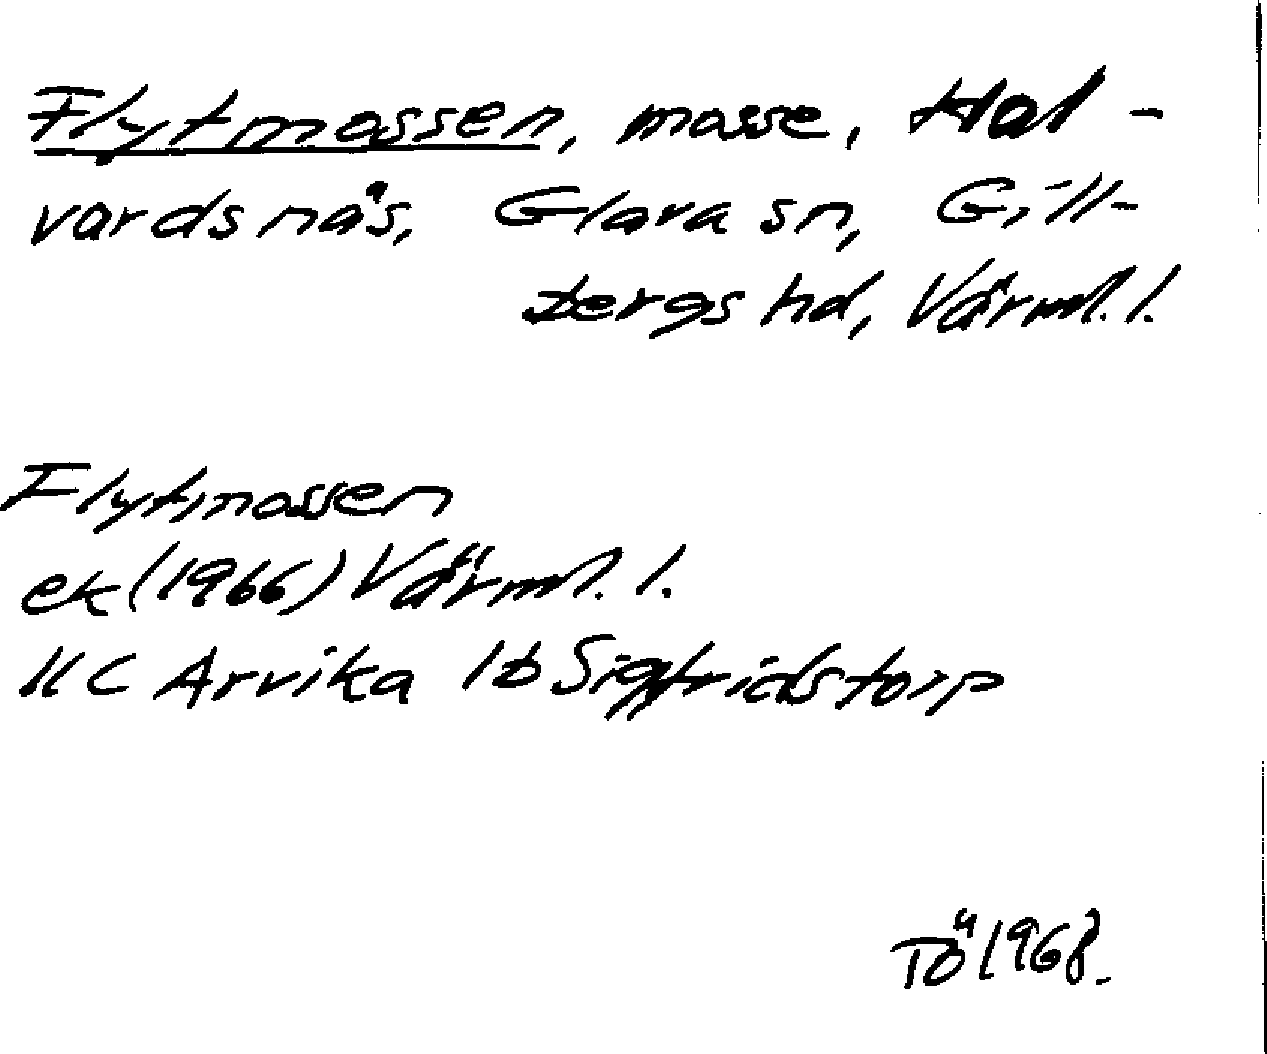 Flytmossen, mosse, Hal-
vardsnäs, Glava sn, Gill-
bergs hd, Värml. l.
Flytmossen
ek (1966) Värml. l.
11C Arvika 1b Sigfridstorp
TÖ 1968.